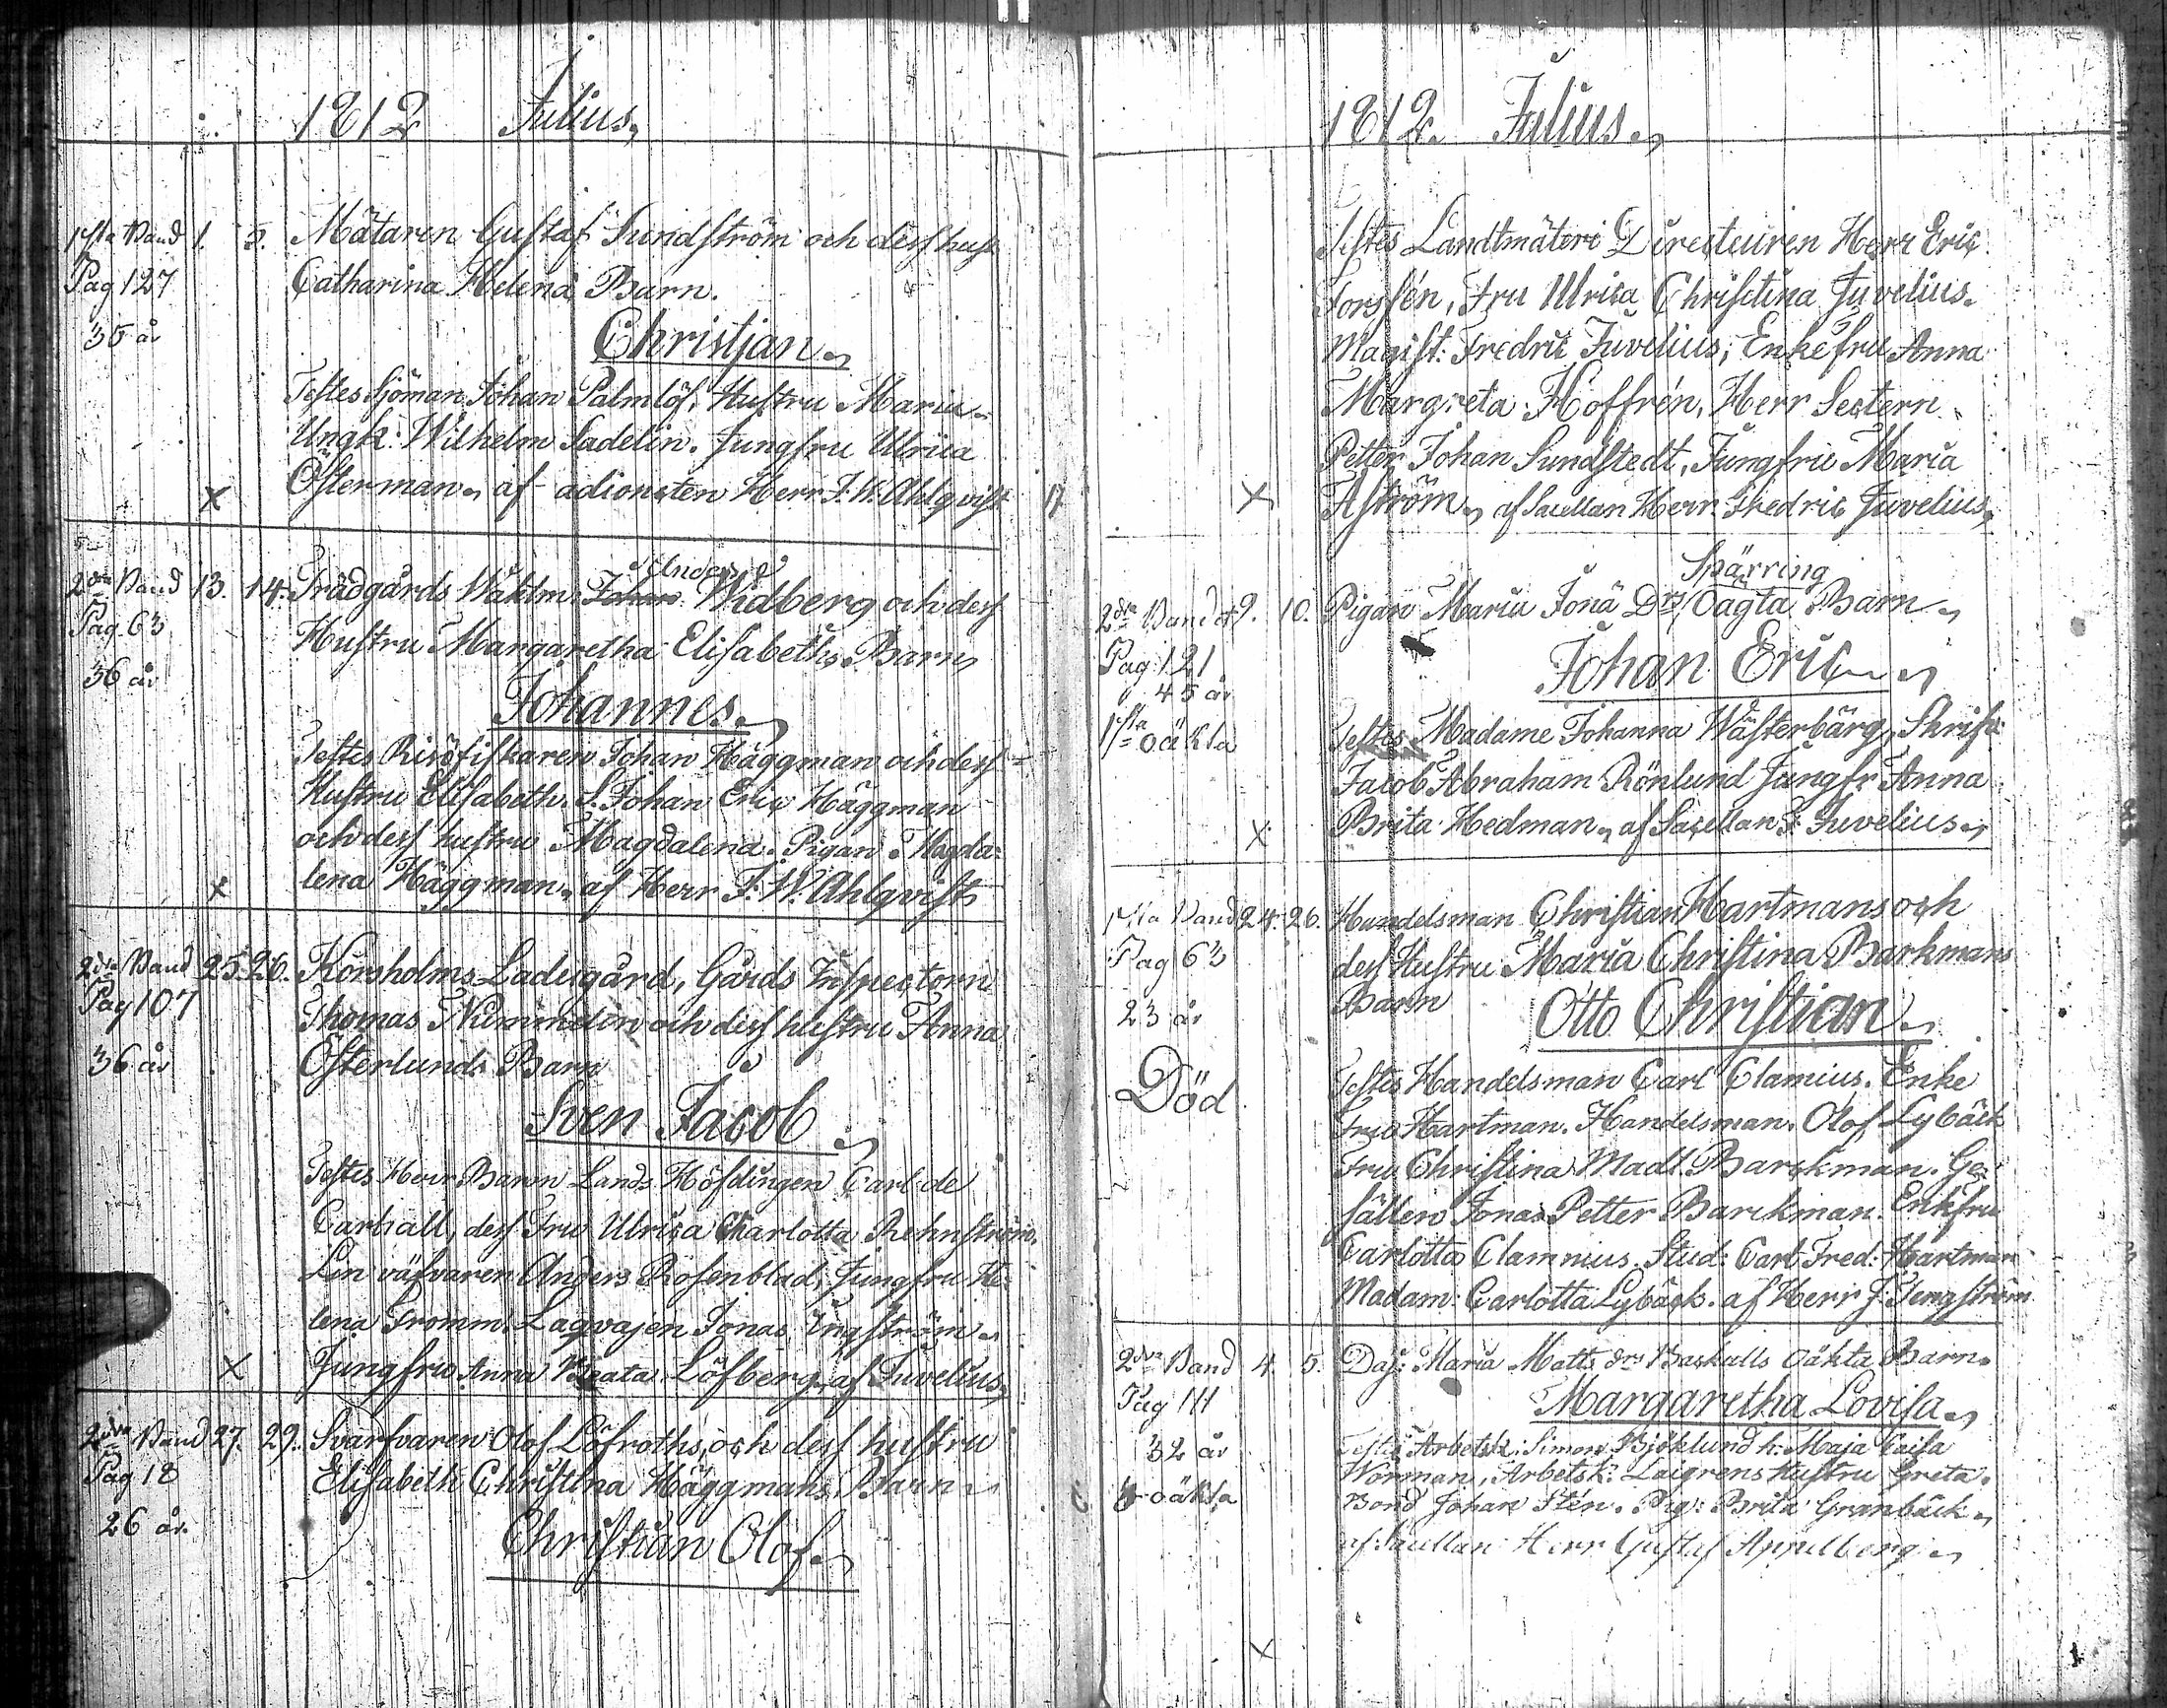 1812 Julius,
1sta Band 1. 5. Mätaren Gustaf Sundström och dess hust
Pag 127 Catharina Helena Barn.
35 år
Christjan
Testes Sjöman Johan Palmlöf, Hustru Maria
Ungk: Wilhelm Sadelin. Jungfru Ulrica
X Österman af adioncten Herr J. W. Ahlqvist
Anders
2dra Band 13. 14. Trädgårds Waktm: Johan Widberg och dess
Pag 63 Hustru Margaretha Elisabeths Barn
36 år
Johannes
Testes Risöfiskaren Johan Häggman och dess
Hustru Elisabeth. S. Johan Eric Häggman
och dess hustru Magdalena. Pigan Magda-
X lena Häggman af Herr J. W. Ahlqvist
2dra Band 25. 26. Korsholms Ladugård, Gårds Inspectorn
Pag 107 Thomas Nummelin och dess hustru Anna
36 år Österlunds Barn
Sven Jacob
Testes Herr Baron Lands Höfdingen Carl de
Carnall, dess Fru Ulrica Charlotta Rehnström,
Lin väfvaren Anders Rosenblad, Jungfru He-
lena Fromm. Lagvajen Jonas Engström
X Jungfru Anna Beata Löfberg af Juvelius,
2dra Band 27. 29. Svarfvaren Olof Löfroths och dess hustru
Pag 18 Elisabeth Christina Häggmans Barn
26 år.
Christian Olof
1812. Julius
Testes Landtmäteri Directeuren Herr Eric
Forssén, Fru Ulrica Christina Juvelius.
Magist: Fredric Juvelius, Enkefru Anna
Margreta Hoffrén, Herr Sectern
Petter Johan Sundstedt, Jungfru Maria
X Åström af Sacellan Herr Fredric Juvelius,
Spärring
2dra Band 9. 10. Pigan Maria Jonä Drs Oägta Barn
Pag 121
45 år
Johan Eric
1sta oäkta Testes Madame Johanna Wästerbärg,
Jacob Abraham Rönlund Jungfr Anna
X Brita Hedman af Sacellan F. Juvelius
1sta Band 24. 26. Handelsman Christian Hartmans och
Pag 63 dess Hustru Maria Christina Barkmans
23 år Barn Otto Christian
Död Testes Handelsman Carl Clamius. Enke
Fru Hartman. Handelsman Olof Lybäck
Fru Christina Madl. Barckman. Ge-
sällen Jonas Petter Barckman. Enkfru
Carlotta Clamnius. Stud: Carl Fred: Hartman
Madam: Carlotta Lybäck. af Herr J: Tengström
2dra Band 4. 5. Maria Matts dr Baskulls Oäkta Barn
Pag 111
Margaretha Lovisa
32 år Testes Arbetsk: Simon Bjöklund h. Maja Caisa
oäkta Worman, Arbetsk: Laigrens Hustru Greta.
Bond Johan Stén. Pig: Brita Granbäck
af Sacellan Herr Gustaf Appelberg
X